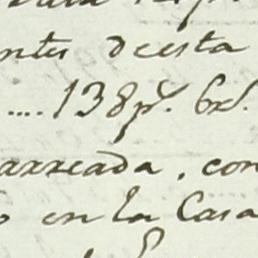 ntes deesta
.... 138 p.s 6 rs.
arreada, con
en la Casa